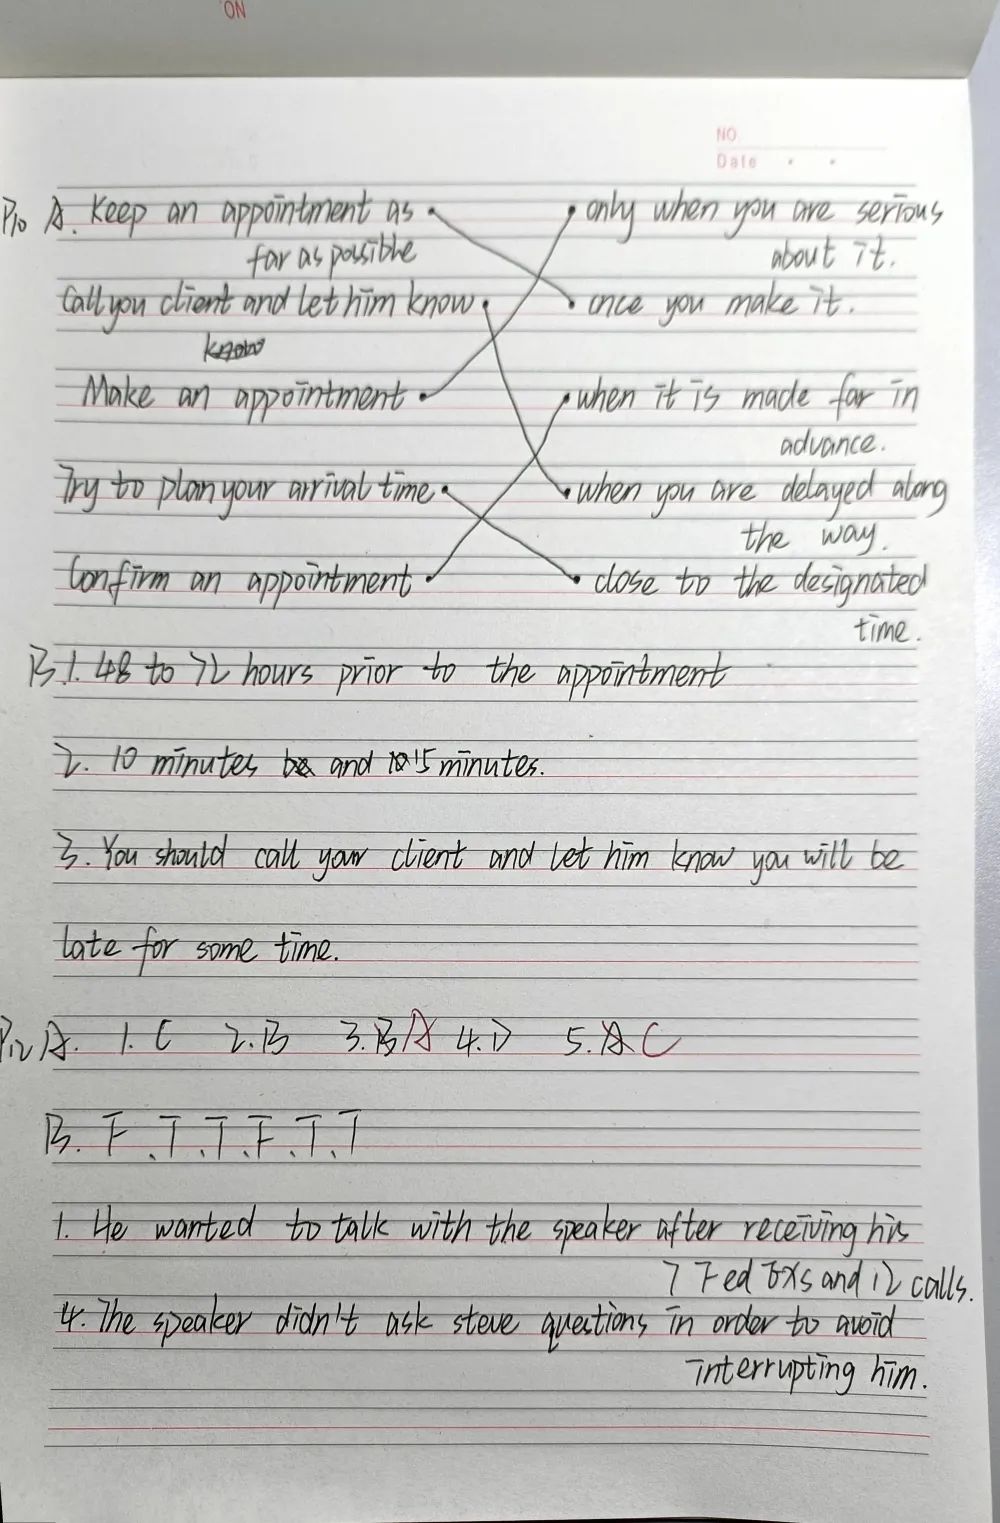 NO.
NO
Date . .
P10 A. Keep an appointment as only when you are serious
far as possible about it.
Call you client and let him know once you make it.
know
Make an appointment when it is made far in
advance.
Try to plan your arrival time when you are delayed along
the way.
Confirm an appointment close to the designated
time.
B 1. 48 to 72 hours prior to the appointment
2. 10 minutes and 15 minutes.
3. You should call your client and let him know you will be
late for some time.
P12 A. 1. C 2. B 3. B A 4. D 5. A C
B. F . T . T . F . T . T
1. He wanted to talk with the speaker after receiving his
7 Fed Exs and 12 calls.
4. The speaker didn't ask steve questions in order to avoid
interrupting him.